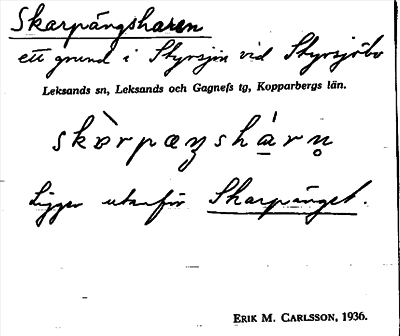 Skarpängsharen
ett grund i Styrsjön vid Styrsjöbo
Leksands sn, Leksands och Gagnefs tg, Kopparbergs län.
skàrpæŋshá̱rn̥
Ligger utanför Skarpänget.
ERIK M. CARLSSON, 1936.